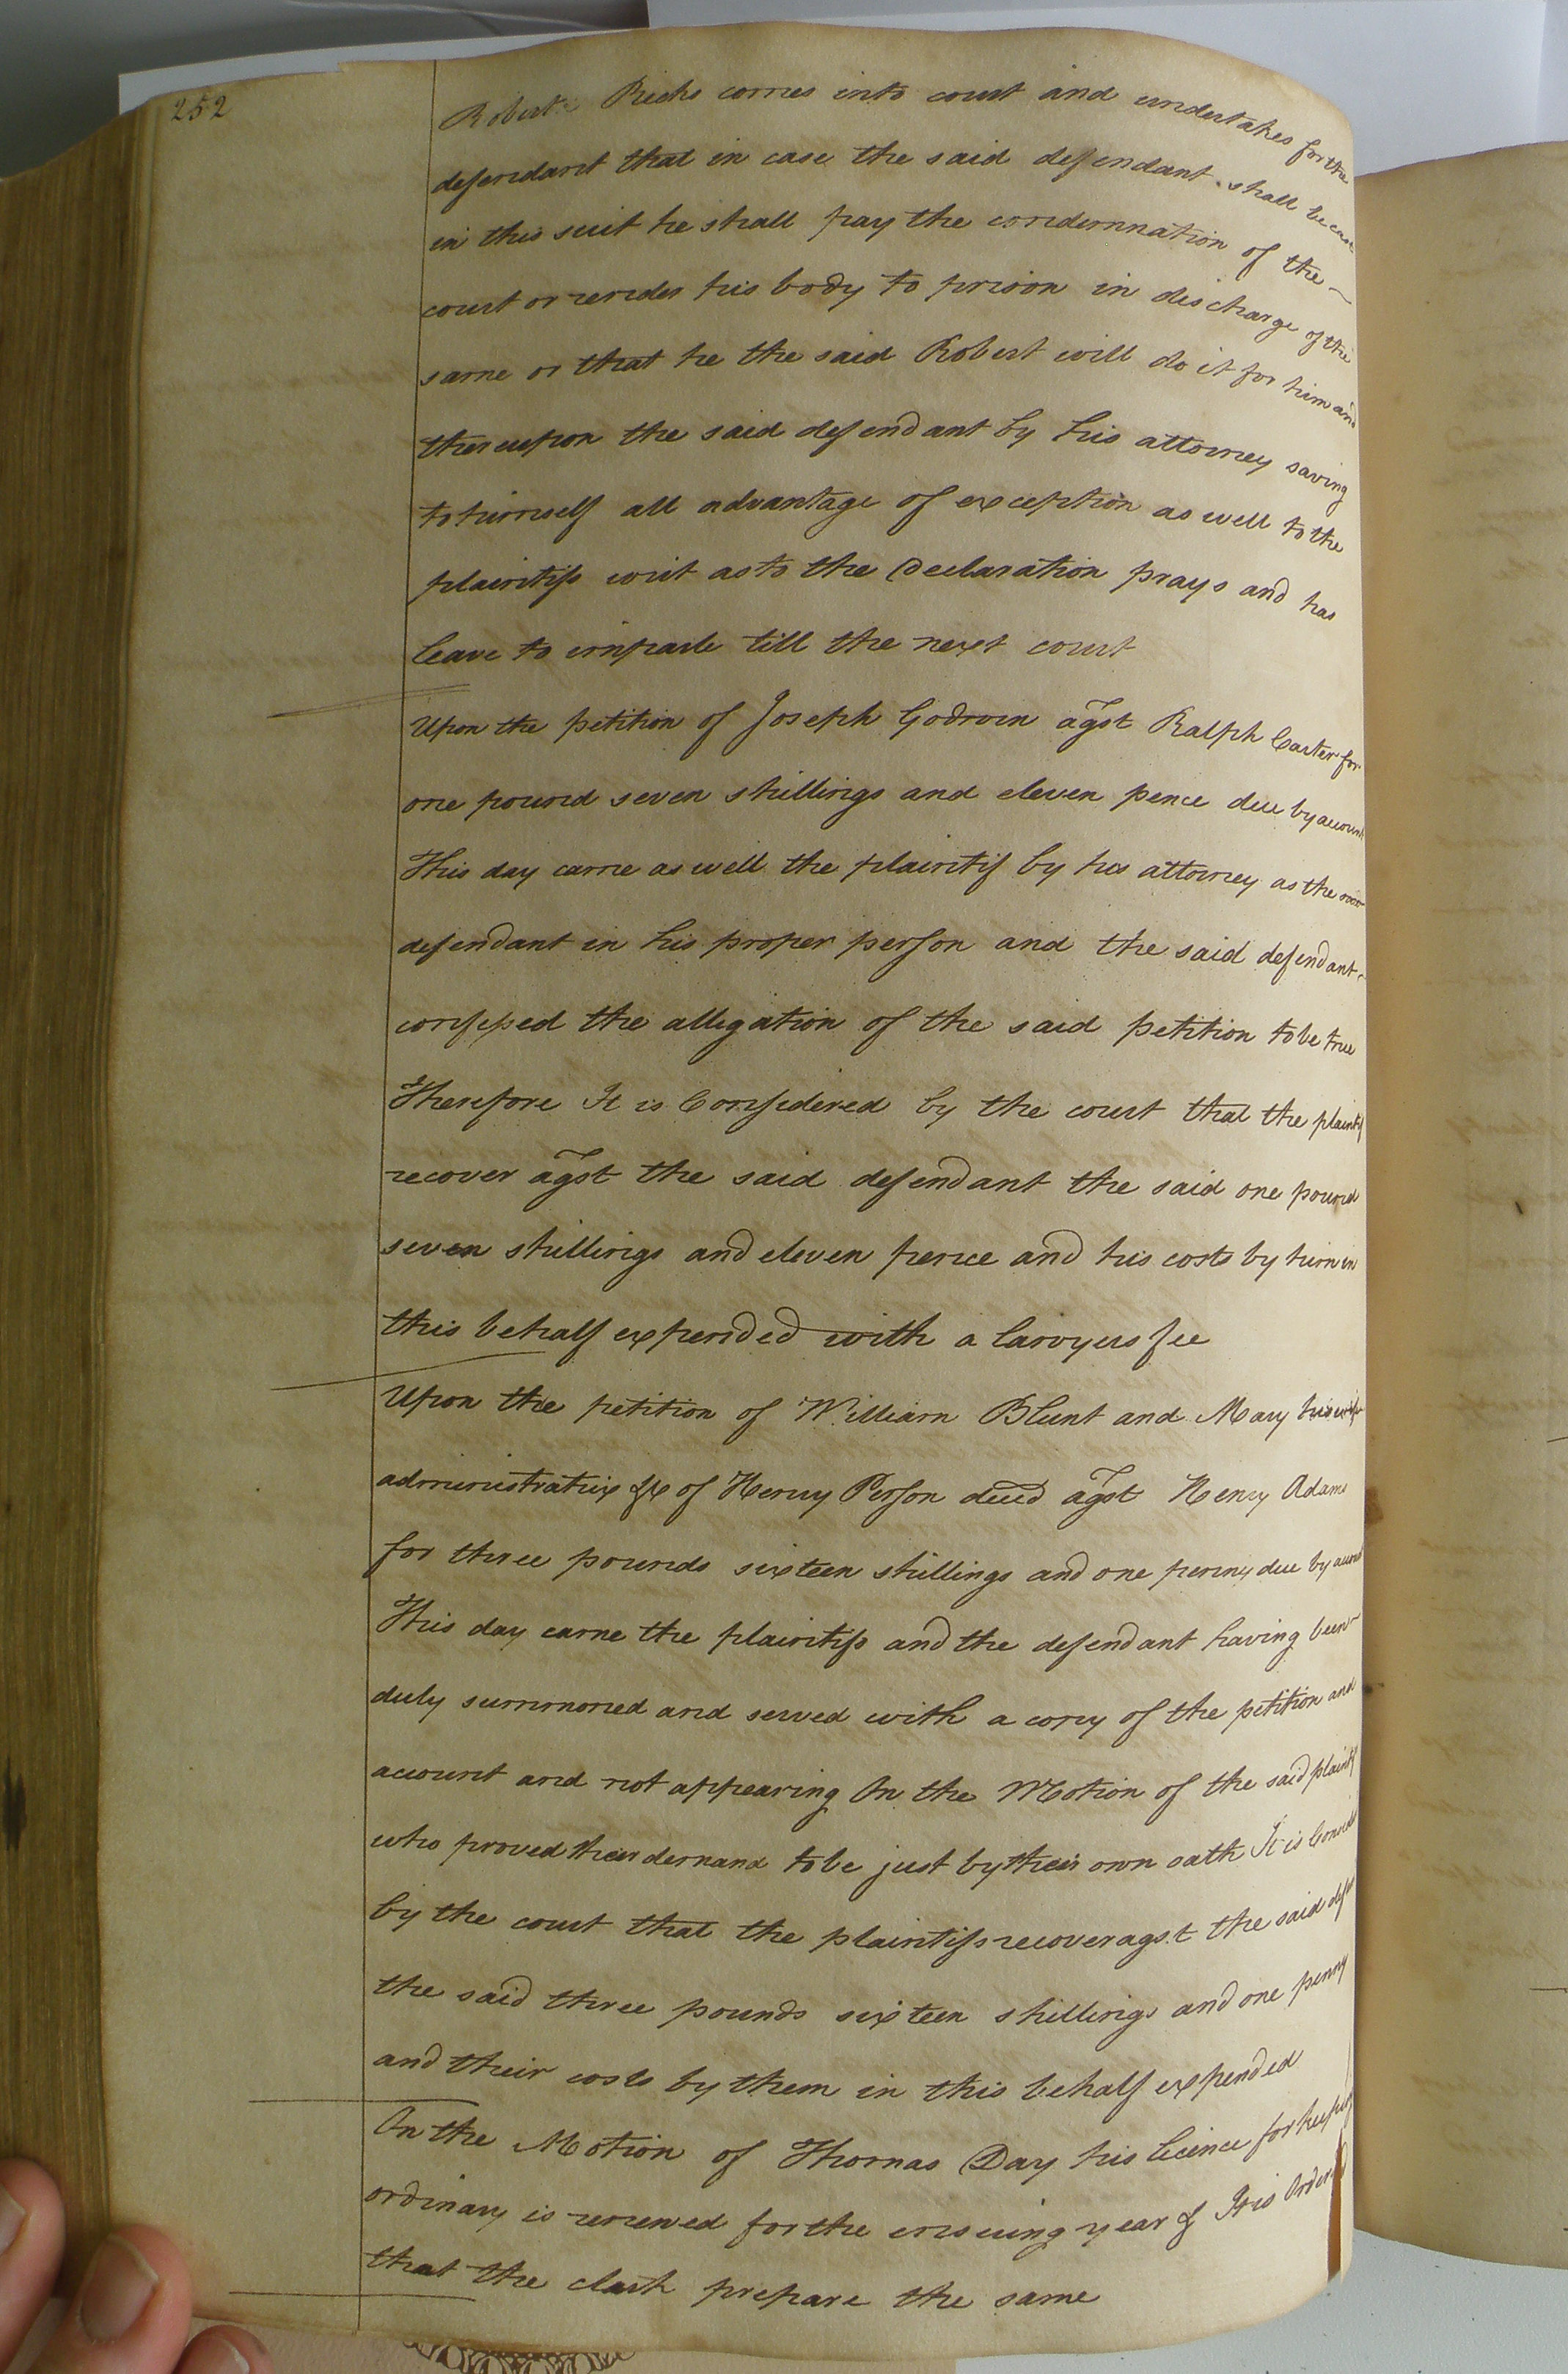 252
Robert Ricks comes into court and undertakes for the
defendant that in case the said defendant shall be cast
in this suit he shall pay the condemnation of the
court or render his body to prison in discharge of the
same or that he the said Robert will do it for him and
thereupon the said defendant by his attorney saving
to himself all advantage of exception as well to the
plaintifs writ as to the Declaration prays and has
leave to imparle till the next court
Upon the petition of Joseph Godwin agst Ralph Carter for
one pound seven shillings and eleven pence due by account
This day came as well the plaintif by his attorney as the
defendant in his proper person and the said defendant
confessed the alligation of the said petition to be true
Therefore It is Considered by the court that the plaintif
recover agst the said defendant the said one pound
seven shillings and eleven pence and his costs by him in
this behalf expended with a lawyers fee
Upon the petition of William Blunt and Mary his wife
administratrix &c of Henry Person decd agst Henry Adams
for three pounds sixteen shillings and one penny due by account
This day came the plaintifs and the defendant having been
duly summoned and served with a copy of the petition and
account and not appearing On the Motion of the said plaintifs
who proved their demand to be just by their own oath It is Consid
by the court that the plaintifs recover agst the said def
the said three pounds sixteen shillings and one penny
and their costs by them in this behalf expended
On the Motion of Thomas Day his licence for keeping
ordinary is renewed for the ensuing year & It is Ordered
that the clark prepare the same